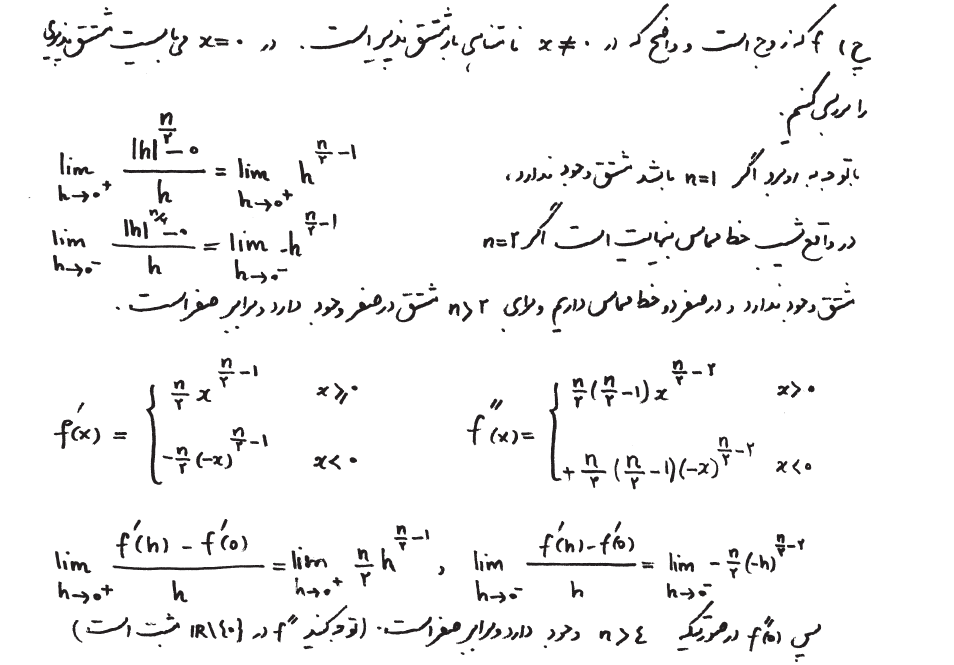 ج) f که زوج است و واضح که در x ≠ ۰ نامتناهی بار مشتق پذیر است. در x = ۰ می‌بایست مشتق پذیری
را بررسی کنیم.
lim_{h→۰⁺} (|h|^{n/۲} - ۰)/h = lim_{h→۰⁺} h^{n/۲ - ۱}
با توجه به اگر n=۱ باشد مشتق وجود ندارد،
lim_{h→۰⁻} (|h|^{n/۲} - ۰)/h = lim_{h→۰⁻} -h^{n/۲ - ۱}
در واقع شیب خط مماس بینهایت است اگر n=۲
مشتق وجود ندارد و در صفر دو خط مماس داریم و برای n>۲ مشتق در صفر وجود دارد و برابر صفر است.
f′(x) = { n/۲ x^{n/۲ - ۱} x ≥ ۰
-n/۲ (-x)^{n/۲ - ۱} x < ۰
f″(x) = { n/۲ (n/۲ - ۱) x^{n/۲ - ۲} x > ۰
+ n/۲ (n/۲ - ۱)(-x)^{n/۲ - ۲} x < ۰
lim_{h→۰⁺} (f′(h) - f′(۰))/h = lim_{h→۰⁺} n/۲ h^{n/۲ - ۱} , lim_{h→۰⁻} (f′(h) - f′(۰))/h = lim_{h→۰⁻} - n/۲ (-h)^{n/۲ - ۲}
پس f″(۰) در صورتیکه n > ٤ وجود دارد و برابر صفر است. (توجه کنید f″ در IR\{۰} مثبت است)